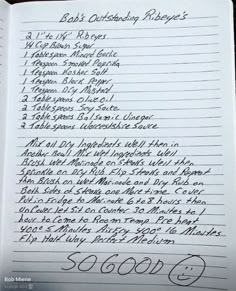 Bob's Outstanding Ribeye's
2 1" to 1½" Ribeyes
¼ Cup Brown Sugar
1 Tablespoon Minced Garlic
1 Teaspoon Smoked Paprika
1 Teaspoon Kosher Salt
1 Teaspoon Black Pepper
1 Teaspoon Dry Mustard
2 Tablespoons Olive oil
2 Tablespoons Soy Sauce
2 Tablespoons Balsamic Vinegar
2 Tablespoons Worcestshire Sauce
Mix all Dry Ingredients Well then in
Another Bowl Mix Wet Ingredients Well
Brush Wet Marinade on Steaks Well then
Sprinkle on Dry Rub Flip Steaks and Repeat
then Brush on Wet Marinade and Dry Rub on
Both Sides of Steaks one More time. Cover
Put in Fridge to Marinate 6 to 8 hours then
unCover Let Sit on Counter 30 Minutes to 1
hour to Come to Room Temp. Pre heat
400° 5 Minutes 400° 16 Minutes
Flip Half Way Perfect Medium
SO GOOD
Bob Miene